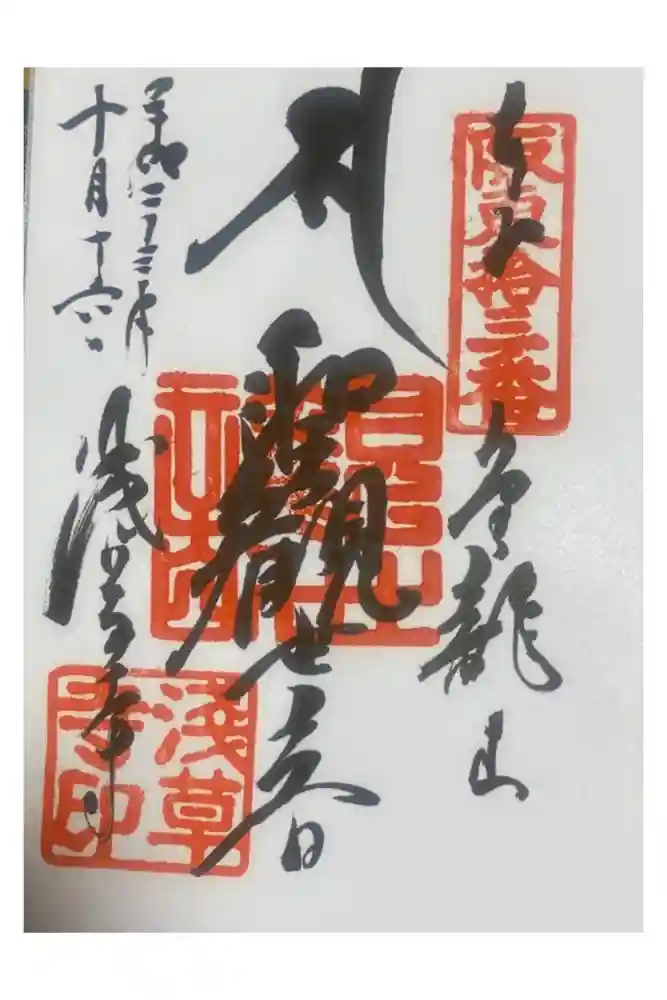 奉拝
阪東拾三番
金龍山
聖觀世音
平成二十三年
十月十六日
浅草寺
淺草寺印